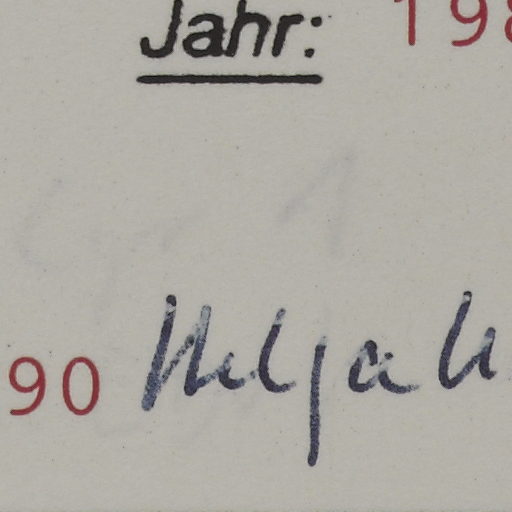 Jahr: 198
90 Helga K